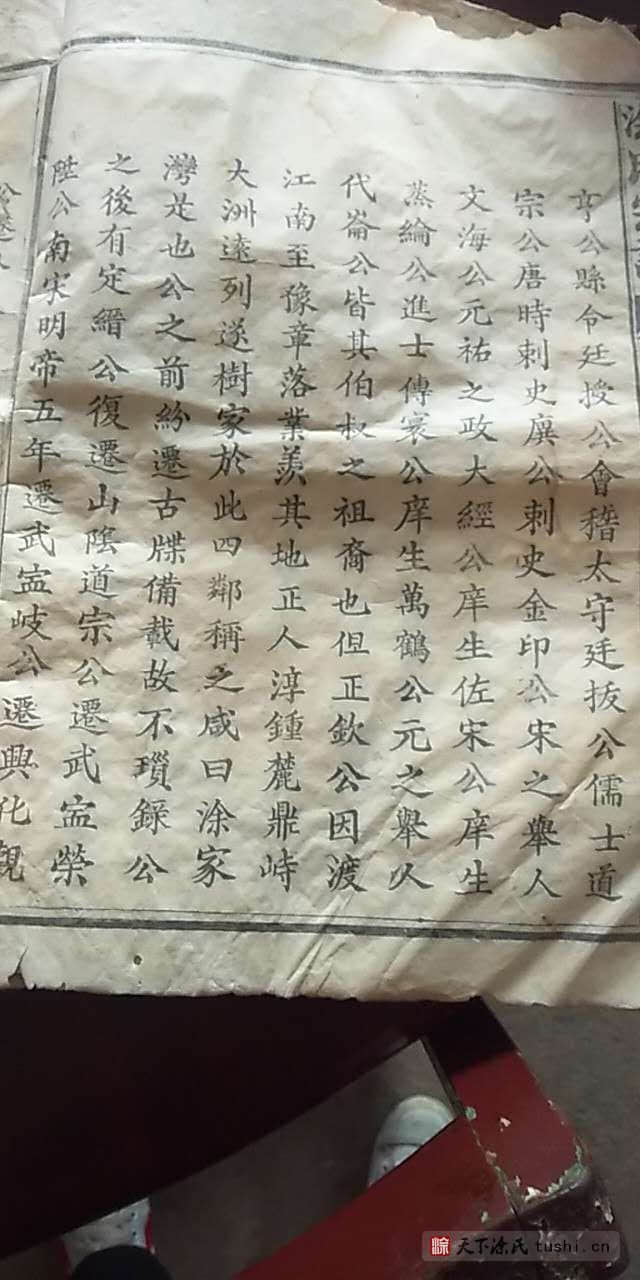 亨公縣令廷授公會稽太守廷拔公儒士道
宗公唐時刺史廙公刺史金印公宋之舉人
文海公元祐之政大經公庠生佐宋公庠生
蒸綸公進士傳寰公庠生萬鶴公元之舉仌
代崙公皆其伯叔之祖裔也但正欽公因渡
江南至豫章落業羨其地正人淳鍾麓鼎峙
大洲遠列遂樹家於此四鄰稱之咸曰涂家
灣是也公之前紛遷古牒備載故不瑣錄公
之後有定縉公復遷山陰道宗公遷武寍榮
陞公南宋明帝五年遷武寍岐公遷興化親
天下涂氏 tushi.cn